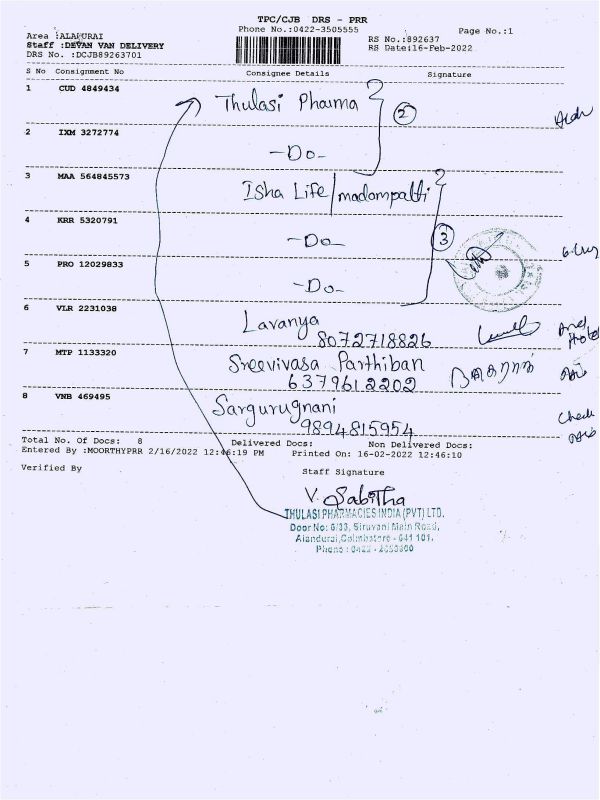 TPC/CJB DRS - PRR
Phone No.:0422-3505555
Page No.:1
Area :ALAPURAI
RS No.:892637
Staff :DEVAN VAN DELIVERY
RS Date:16-Feb-2022
DRS No. :DCJB89263701
S No Consignment No Consignee Details Signature
1 CUD 4849434 Thulasi Pharma 2
2 IXM 3272774 -Do-
3 MAA 564845573 Isha Life/madampatti
4 KRR 5320791 -Do- 3
5 PRO 12029833 -Do-
6 VLR 2231038 Lavanya
8072718826
7 MTP 1133320 Sreevivasa Parthiban
6379612202
8 VNB 469495 Sargurugnani
9894815954
Total No. Of Docs: 8 Delivered Docs: Non Delivered Docs:
Entered By :MOORTHYPRR 2/16/2022 12:46:19 PM Printed On: 16-02-2022 12:46:10
Verified By Staff Signature
V. Sabitha
THULASI PHARMACIES INDIA (PVT) LTD.
Door No: 6/33, Siruvani Main Road,
Alandurai, Coimbatore - 641 101.
Phone : 0422 -